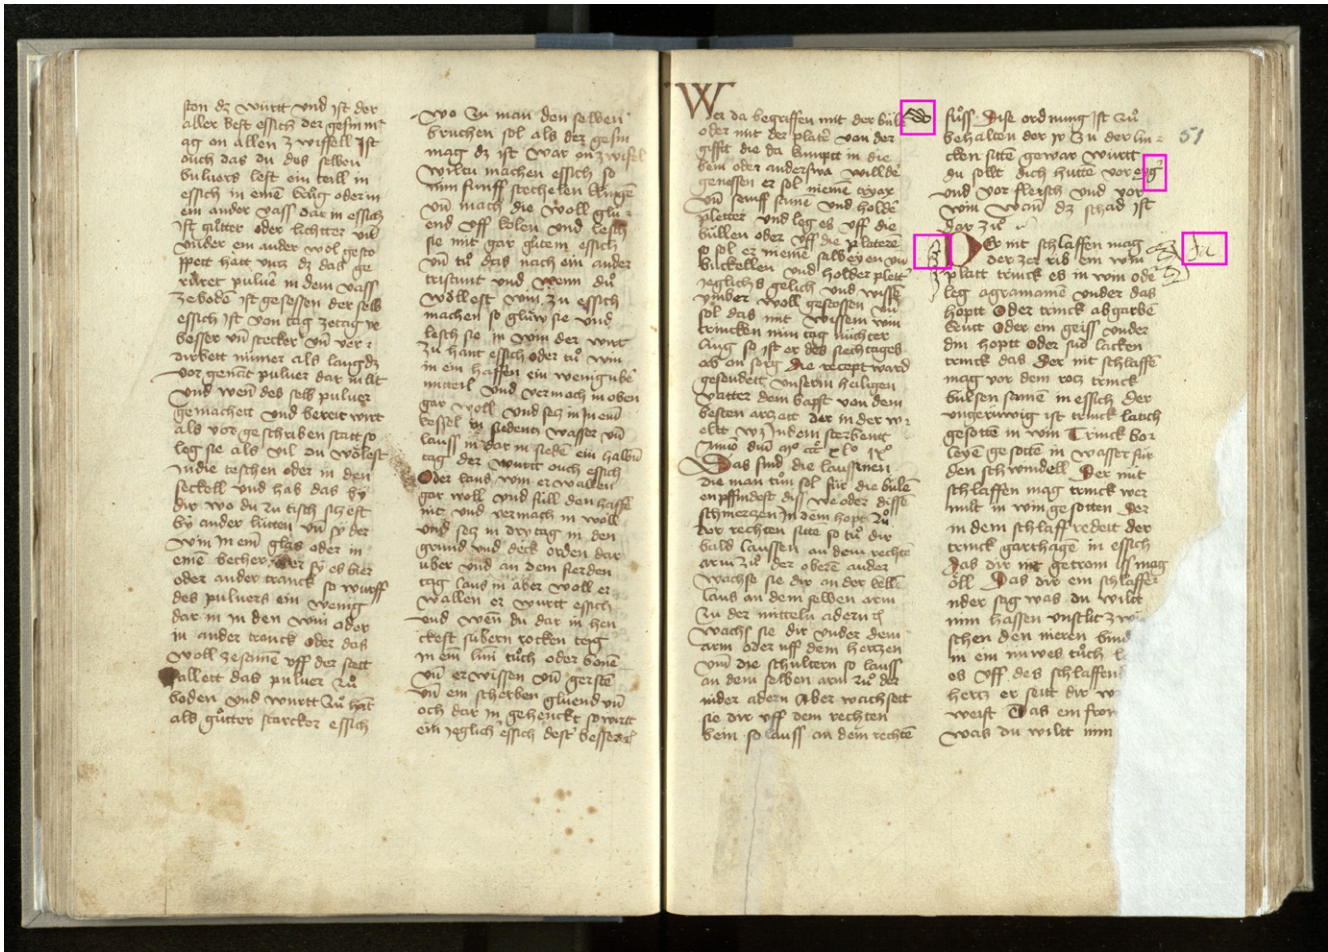 ston dz württ vnd ist der
aller best essich der gesin mt
ag on allen zwiffell Ist
ouch das du des selben
buluers lest ein teill in
essich in einē krůg oder in
ein ander vass dar in essich
ist gůtter oder lichtter vn̄
vnder ein ander wol gesto
pett hatt vntz dz das ge
růret puluē in dem vass
ze bodē ist gesessen der selb
essich ist von tag ze tag ye
besser vn̄ stercker vn̄ ver
dirbett nümer als lang dz
vor genāt puluer dar in lit
vnd wen̄ des selb puluer
gemachett vnd bereit wirt
als vor geschriben statt so
leg sie als vil du wölest
in die teschen oder in den
seckell vnd hab das by
dir wo du zu tisch sitzest
by ander lütten vn̄ sy der
win in eim glas oder in
einē becher oder sy es bier
oder ander tranck so wurff
des puluers ein wenig
dar in in den win oder
in ander tranck oder das
woll ze samē vff der stett
vallett das puluer zů
boden vnd wurtt zů hāt
als gůtter starcker essich
wo zu man den selben
bruchen sol als der gesin
mag dz ist war on zwifel
wiltu machen essich so
nim fünff stechelen klingē
vn̄ mach die woll glu
end vff kolen vnd lesch
sie mit gar gůtem essich
vn̄ tů das nach ein ander
tristunt vnd wenn du
wöllest win zu essich
machen so glüw sie vnd
lesch sie in win der wirt
zu hant essich oder tů win
in ein haffen ein wenig übē
mitteil vnd vermach in oben
gar woll vnd setz in in eim
kessel in siedentz wasser vn̄
lauss in dar in siedē ein halbn̄
tag der wurtt ouch essich
Oder laus win erwallen
gar woll vnd füll den haffē
nit vnd vermach in woll
vnd setz in dry tag in den
grund vnd deck erden dar
über vnd an dem fierden
tag laus in aber woll er
wallen er wurtt essich
vnd wen̄ du dar in hen
ckest subern rocken teig
in eim lini tůch oder bonē
vn̄ erwissen vn̄ gerstē
vn̄ ein scherben glüend vn̄
och dar in gehenckt so wirtt
ein jeglich essich dest besser
Wer da begriffen mit der bülē
oder mit der platē von der
gifft die da kumptt in die
bein oder anderswa willde
genessen er sol niemē tryax
vn̄ senff samē vnd holdē
pletter vnd leg es vff die
büllen oder vff die platerē
so sol er niemē salbeyen vn̄
bückellen vnd holder plett
jeglichs gelich vnd wissē
ymber woll gestossen vn̄
sol das mit wissem win
trincken nün tag nüchter
ling so ist er des siechtages
ab an sorg Die recept ward
gesendett vnserm heiligen
vatter dem bapst von dem
besten artzatt der in der w
eltt wz In dem sterbentt
Anno dm̄
Das sind die laussinen
die man tůn sol für die bülē
enpffindest diss we oder dissē
schmertzen In dem hopt zů
der rechten sitte so tů dir
bald laussen an dem rechtē
arm zů der oberē ander
wachse sie dir an der kellē
laus an dem selben arm
zu der mitteln adern
wachs sie dir vnder dem
arm oder vff dem hertzen
vm̄ die schultern so lauss
an dem selben arm zů der
nider adern Aber wachsett
sie dir vff dem rechten
bein so lauss an dem rechtē
fůss Dise ordnung ist zů
behalten der jr zu der lin
cken sitē gewar wurtt
du sollt dich hüttē vor eyg
vnd vor fleisch vnd vor
win wan̄ dz schad ist
dar zů
51
Der nit schlaffen mag
der zer rib ein win
platt trinck es in win ode
leg agramanē vnder das
hoptt Oder trinck abgarbē
krut Oder ein geiss vnder
din hoptt oder sud lacken
trinck das Der nit schlaffē
mag vor dem rotz trinck
bülsen samē in essich der
vngerüwig ist trinck latich
gesottē in win Trinck bor
leye gesottē in wasser für
den schwindell Der nit
schlaffen mag trinck wer
mutt in win gesotten Der
in dem schlaff redett der
trinck garthagē in essich
Das dir nit getrom iss mag
öll Das dir ein schlaffē
nder sag was du willt
nim hassen vnslit zwi
schen den nieren bind
in ein nuwes tůch l
es vff des schlaffend
hertz er seitt dir w
weist Das ein frow
was du willt nim